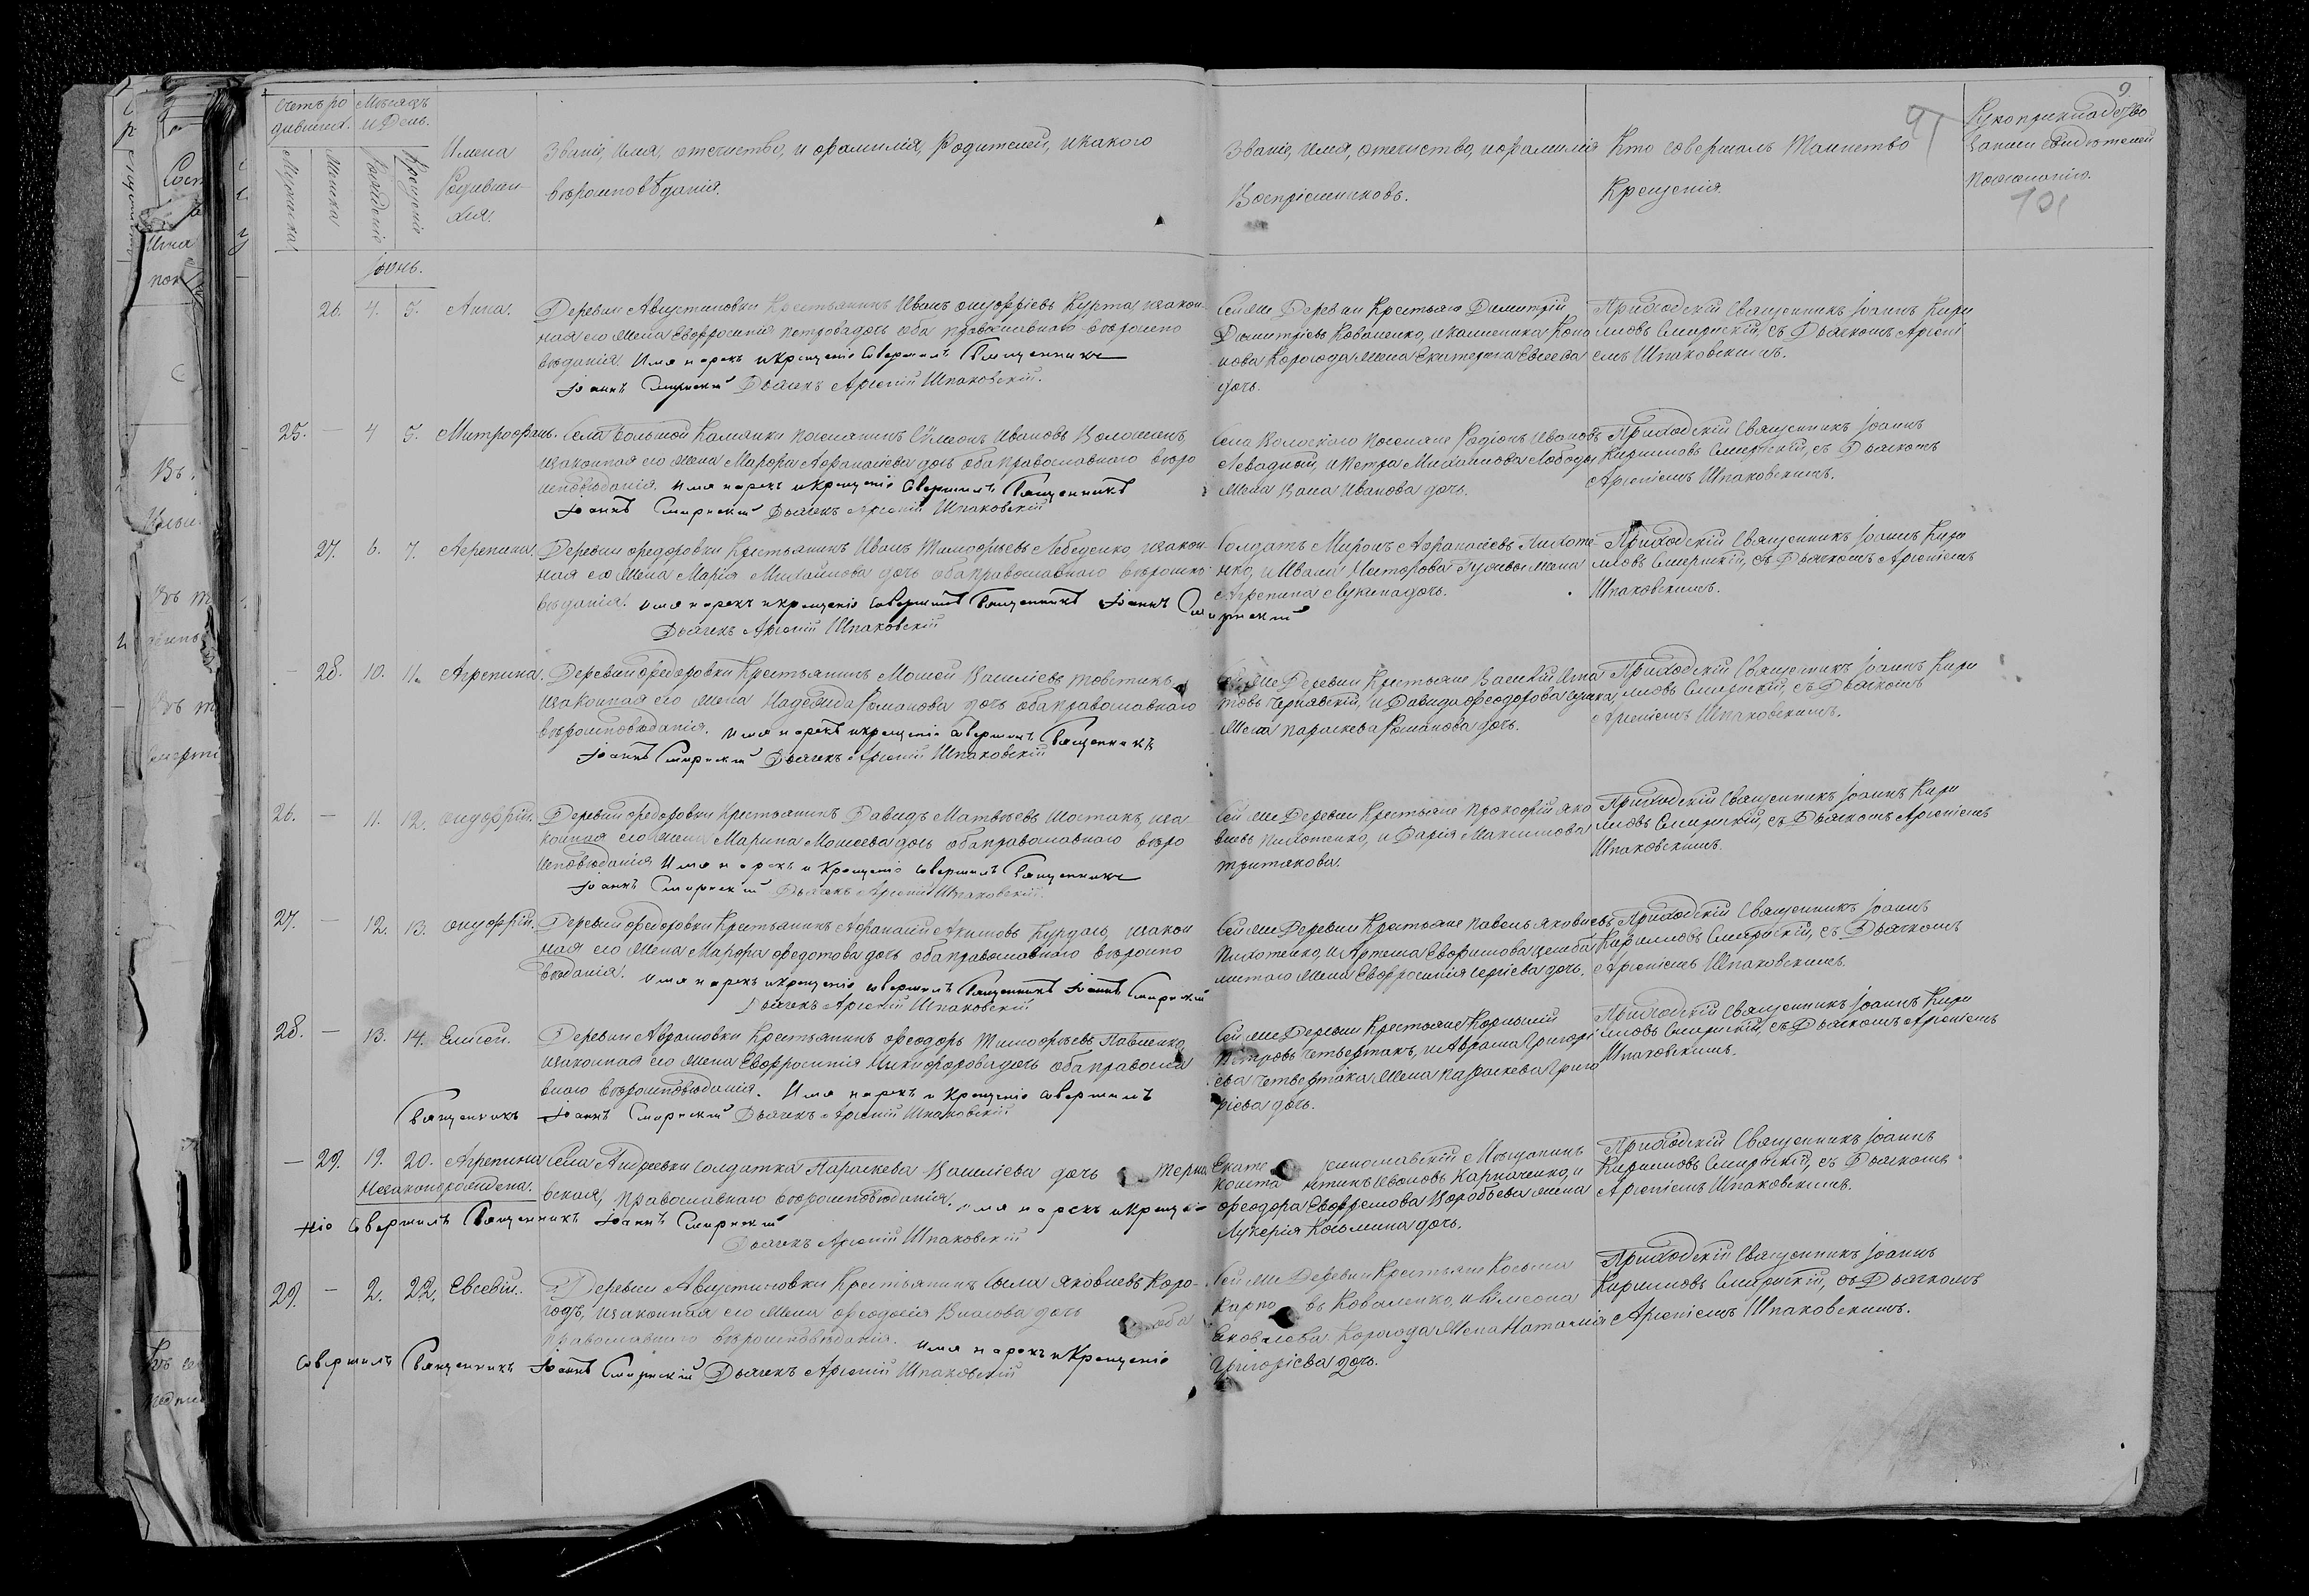 Счетъ ро
дившихся.
Мѣсяцъ
и День.
Мужеска
Женска
Рожденія
Крещенія
Имена
Родивши-
хся.
Званіе, Имя, отечество, и фамилія, Родителей, и какого
вѣроисповѣданія.
Званіе, Имя, отечество, и фамилія
Воспріемниковъ.
Кто совершалъ Таинство
Крещенія.
Рукоприкладство
записи свидѣтелей
по желанію.
9
91
101
Іюнь.
26. 4. 5. Анна. Деревни Августиновки Крестьянинъ Иванъ Онуфріевъ Курта, и закон-
ная его Жена Евфросинія Петрова дочь оба православнаго вѣроиспо
вѣданія. Имя нарекъ и Крещеніе совершилъ Священникъ
Іоаннъ Смирнскій Дьячекъ Арсеній Шпаковскій.
Сей же Деревни Крестьяне Димитрій
Димитріевъ Коваленко, и Калиника Коно
нова Корогода Жена Екатерина Евсеева
дочь.
Приходскій Священникъ Іоаннъ Кири
лловъ Смирнскій, съ Дьячкомъ Арсені
емъ Шпаковскимъ.
25. — 4 5. Митрофанъ. Села Большой Камянки поселянинъ Сѵмеонъ Ивановъ Волошенъ,
и законная его Жена Марфа Афанасіева дочь оба православнаго вѣро
исповѣданія. Имя нарекъ и Крещеніе совершилъ Священникъ
Іоаннъ Смирнскій Дьячекъ Арсеній Шпаковскій
Села Волоского поселяне Родіонъ Ивановъ
Левадный, и Петра Михайлова Лободы
Жена Васа Иванова дочь.
Приходскій Священникъ Іоаннъ
Кирилловъ Смирнскій, съ Дьячкомъ
Арсеніемъ Шпаковскимъ.
27. 6. 7. Агрепина. Деревни Федоровки Крестьянинъ Иванъ Тимофѣевъ Лебеденко, и закон-
ная его Жена Марія Михайлова дочь оба православнаго вѣроиспо
вѣданія. Имя нарекъ и Крещеніе совершилъ Священникъ Іоаннъ Смирнскій
Дьячекъ Арсеній Шпаковскій
Солдатъ Миронъ Афанасіевъ Пихоте
нко, и Ивана Нестерова Жена
Агрепина Лукина дочь.
Приходскій Священникъ Іоаннъ Кири
лловъ Смирнскій, съ Дьячкомъ Арсеніемъ
Шпаковскимъ.
— 28. 10. 11. Агрепина. Деревни Федоровки Крестьянинъ Мосей Василіевъ Товстикъ,
и законная его Жена Надежда Романова дочь оба православнаго
вѣроисповѣданія. Имя нарекъ и крещеніе совершилъ Священникъ
Іоаннъ Смирнскій Дьячекъ Арсеній Шпаковскій
Сей же Деревни Крестьяне Василій Игна
товъ Чернявскій, и Давида Феодорова
Жена Параскева Романова дочь.
Приходскій Священникъ Іоаннъ Кири
лловъ Смирнскій, съ Дьячкомъ
Арсеніемъ Шпаковскимъ.
26. — 11. 12. Онуфрій. Деревни Федоровки Крестьянинъ Давидъ Матвѣевъ Шостакъ, и за
конная его Жена Марина Мосеева дочь оба православнаго вѣро
исповѣданія Имя нарекъ и Крещеніе совершилъ Священникъ
Іоаннъ Смирнскій Дьячекъ Арсеній Шпаковскій.
Сей же Деревни Крестьяне Прокофій Яко
влевъ Пихотенко, и Дарія Максимова
Третякова.
Приходскій Священникъ Іоаннъ Кири
лловъ Смирнскій, съ Дьячкомъ Арсеніемъ
Шпаковскимъ.
27. — 12. 13. Онуфрій. Деревни Федоровки Крестьянинъ Афанасій Акимовъ Курдасъ, и закон
ная его Жена Марфа Федотова дочь оба православнаго вѣроиспо
вѣданія. Имя нарекъ и крещеніе совершилъ Священникъ Іоаннъ Смирнскій
Дьячекъ Арсеній Шпаковскій
Сей же Деревни Крестьяне Павелъ Яковлевъ
Пихотенко, и Артема Евфимова
Жена Евфросинія Сергіева дочь.
Приходскій Священникъ Іоаннъ
Кирилловъ Смирнскій, съ Дьячкомъ
Арсеніемъ Шпаковскимъ.
28. — 13. 14. Елисей. Деревни Авраамовки Крестьянинъ Феодоръ Тимофѣевъ Павленко,
и законная его Жена Евфросинія Никифорова дочь оба правосла
внаго вѣроисповѣданія. Имя нарекъ и Крещеніе совершилъ
Священникъ Іоаннъ Смирнскій Дьячекъ Арсеній Шпаковскій
Сей же Деревни Крестьяне Корнилій
Петровъ Четвертакъ, и Аврама Григорі
ева Четвертака Жена Параскева Григо
ріева дочь.
Приходскій Священникъ Іоаннъ Кири
лловъ Смирнскій, съ Дьячкомъ Арсеніемъ
Шпаковскимъ.
— 29. 19. 20. Агрепина Села Андреевки солдатка Параскева Василіева дочь Терно
незаконорожденна. вская, православнаго вѣроисповѣданія. Имя нарекъ и Креще-
ніе совершилъ Священникъ Іоаннъ Смирнскій
Дьячекъ Арсеній Шпаковскій
Екатеринославскій Мѣщанинъ
Константинъ Ивановъ Карпаченко, и
Феодора Евфремова Воробьева жена
Лукерія Косьмина дочь.
Приходскій Священникъ Іоаннъ
Кирилловъ Смирнскій, съ Дьячкомъ
Арсеніемъ Шпаковскимъ.
29. — 2. 22. Евсевій. Деревни Августиновки Крестьянинъ Сыла Яковлевъ Коро-
годъ, и законная его Жена Феодосія Власова дочь оба
православнаго вѣроисповѣданія. Имя нарекъ и Крещеніе
совершилъ Священникъ Іоаннъ Смирнскій Дьячекъ Арсеній Шпаковскій
Сей же Деревни Крестьяне Косьма
Карповъ Коваленко, и Сѵмеона
Яковлева Корогода Жена Наталія
Григоріева дочь.
Приходскій Священникъ Іоаннъ
Кирилловъ Смирнскій, съ Дьячкомъ
Арсеніемъ Шпаковскимъ.